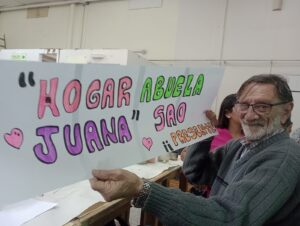 "HOGAR ABUELA
JUANA" SAO
¡¡PRESENTE